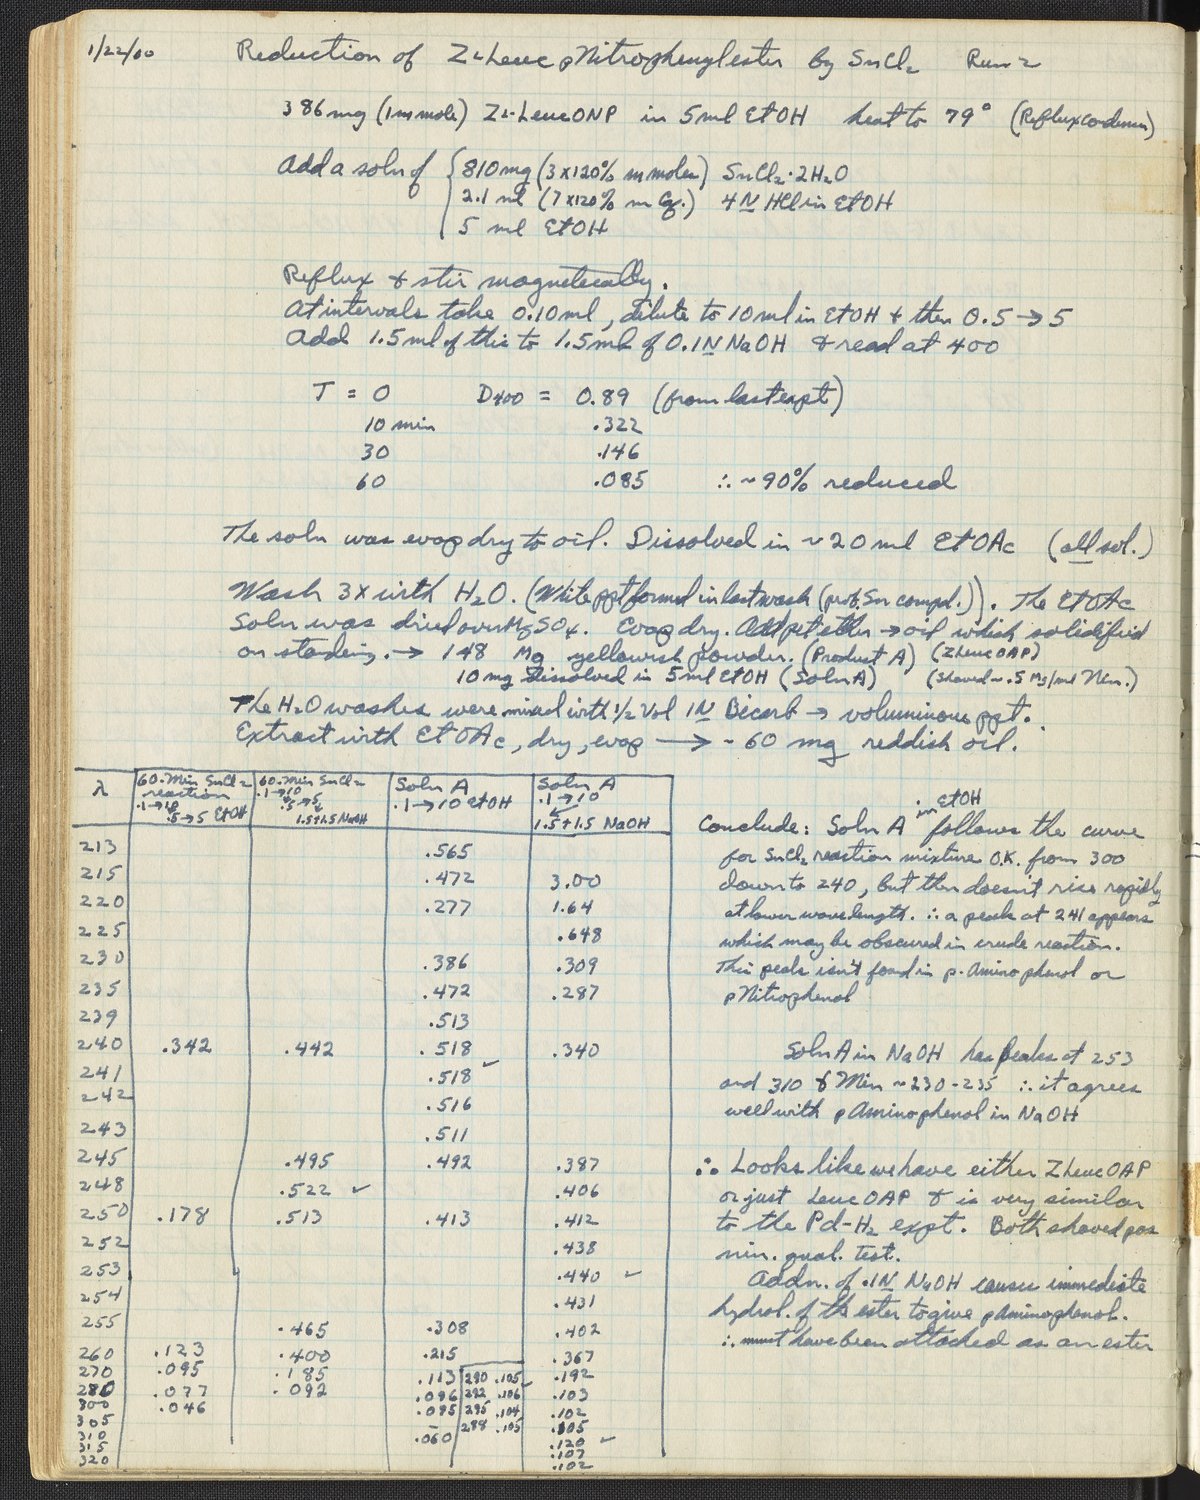 1/22/60 Reduction of Z-L-Leuc pNitrophenylester by SnCl2 Run 2
386 mg (1 m mole) Z-L-Leuc ONP in 5 ml EtOH heat to 79° (Reflux condenser)
Add a soln of { 810 mg (3 x 120% m moles) SnCl2·2H2O
2.1 ml (7 x 120% m Eq.) 4 N HCl in EtOH
5 ml EtOH
Reflux & stir magnetically.
At intervals take 0.10 ml, dilute to 10 ml in EtOH & then 0.5 → 5
Add 1.5 ml of this to 1.5 ml of 0.1 N NaOH & read at 400
T = 0 D400 = 0.89 (from last expt)
10 min .322
30 .146
60 .085 ∴ ~ 90% reduced
The soln was evap dry to oil. Dissolved in ~ 20 ml EtOAc (all sol.)
Wash 3X with H2O. (White ppt formed in last wash (prob. Sn compd.)). The EtOAc
soln was dried over MgSO4. Evap dry. Add pet ether → oil which solidified
on standing. → 148 mg yellowish powder. (Product A) (ZLeucOAP)
10 mg dissolved in 5 ml EtOH (Soln A) (Showed ~ .5 mg/ml Nin.)
The H2O washes were mixed with 1/2 Vol 1 N Bicarb → voluminous ppt.
Extract with EtOAc, dry, evap → ~ 60 mg reddish oil.
λ | 60. Min SnCl2 reaction .1→10 .5→5 EtOH | 60. Min SnCl2 .1→10 .5→5 1.5+1.5 NaOH | Soln A .1→10 EtOH | Soln A .1→10 1.5+1.5 NaOH
213 .565
215 .472 3.00
220 .277 1.64
225 .648
230 .386 .309
235 .472 .287
239 .513
240 .342 .442 .518 .340
241 .518 ✓
242 .516
243 .511
245 .495 .492 .387
248 .522 ✓ .406
250 .178 .513 .413 .412
252 .438
253 .440 ✓
254 .431
255 .465 .308 .402
260 .123 .400 .215 .367
270 .095 .185 .113 .192
280 .077 .092 .096 .103
300 .046 .095 .102
305 – .105
310 .060 .120 ✓
315 .107
320 .102
290 .105
292 .106 ✓
295 .104
288 .105
Conclude: Soln A in EtOH follows the curve
for SnCl2 reaction mixture O.K. from 300
down to 240, but then doesn't rise rapidly
at lower wavelength. ∴ a peak at 241 appears
which may be obscured in crude reaction.
This peak isn't found in p-Aminophenol or
pNitrophenol
Soln A in NaOH has peaks at 253
and 310 & Min ~ 230-235 ∴ it agrees
well with pAminophenol in NaOH
∴ Looks like we have either ZLeucOAP
or just LeucOAP & is very similar
to the Pd-H2 expt. Both showed pos
nin. qual. test.
Addn. of .1N NaOH causes immediate
hydrol. of the ester to give pAminophenol.
∴ must have been attached as an ester